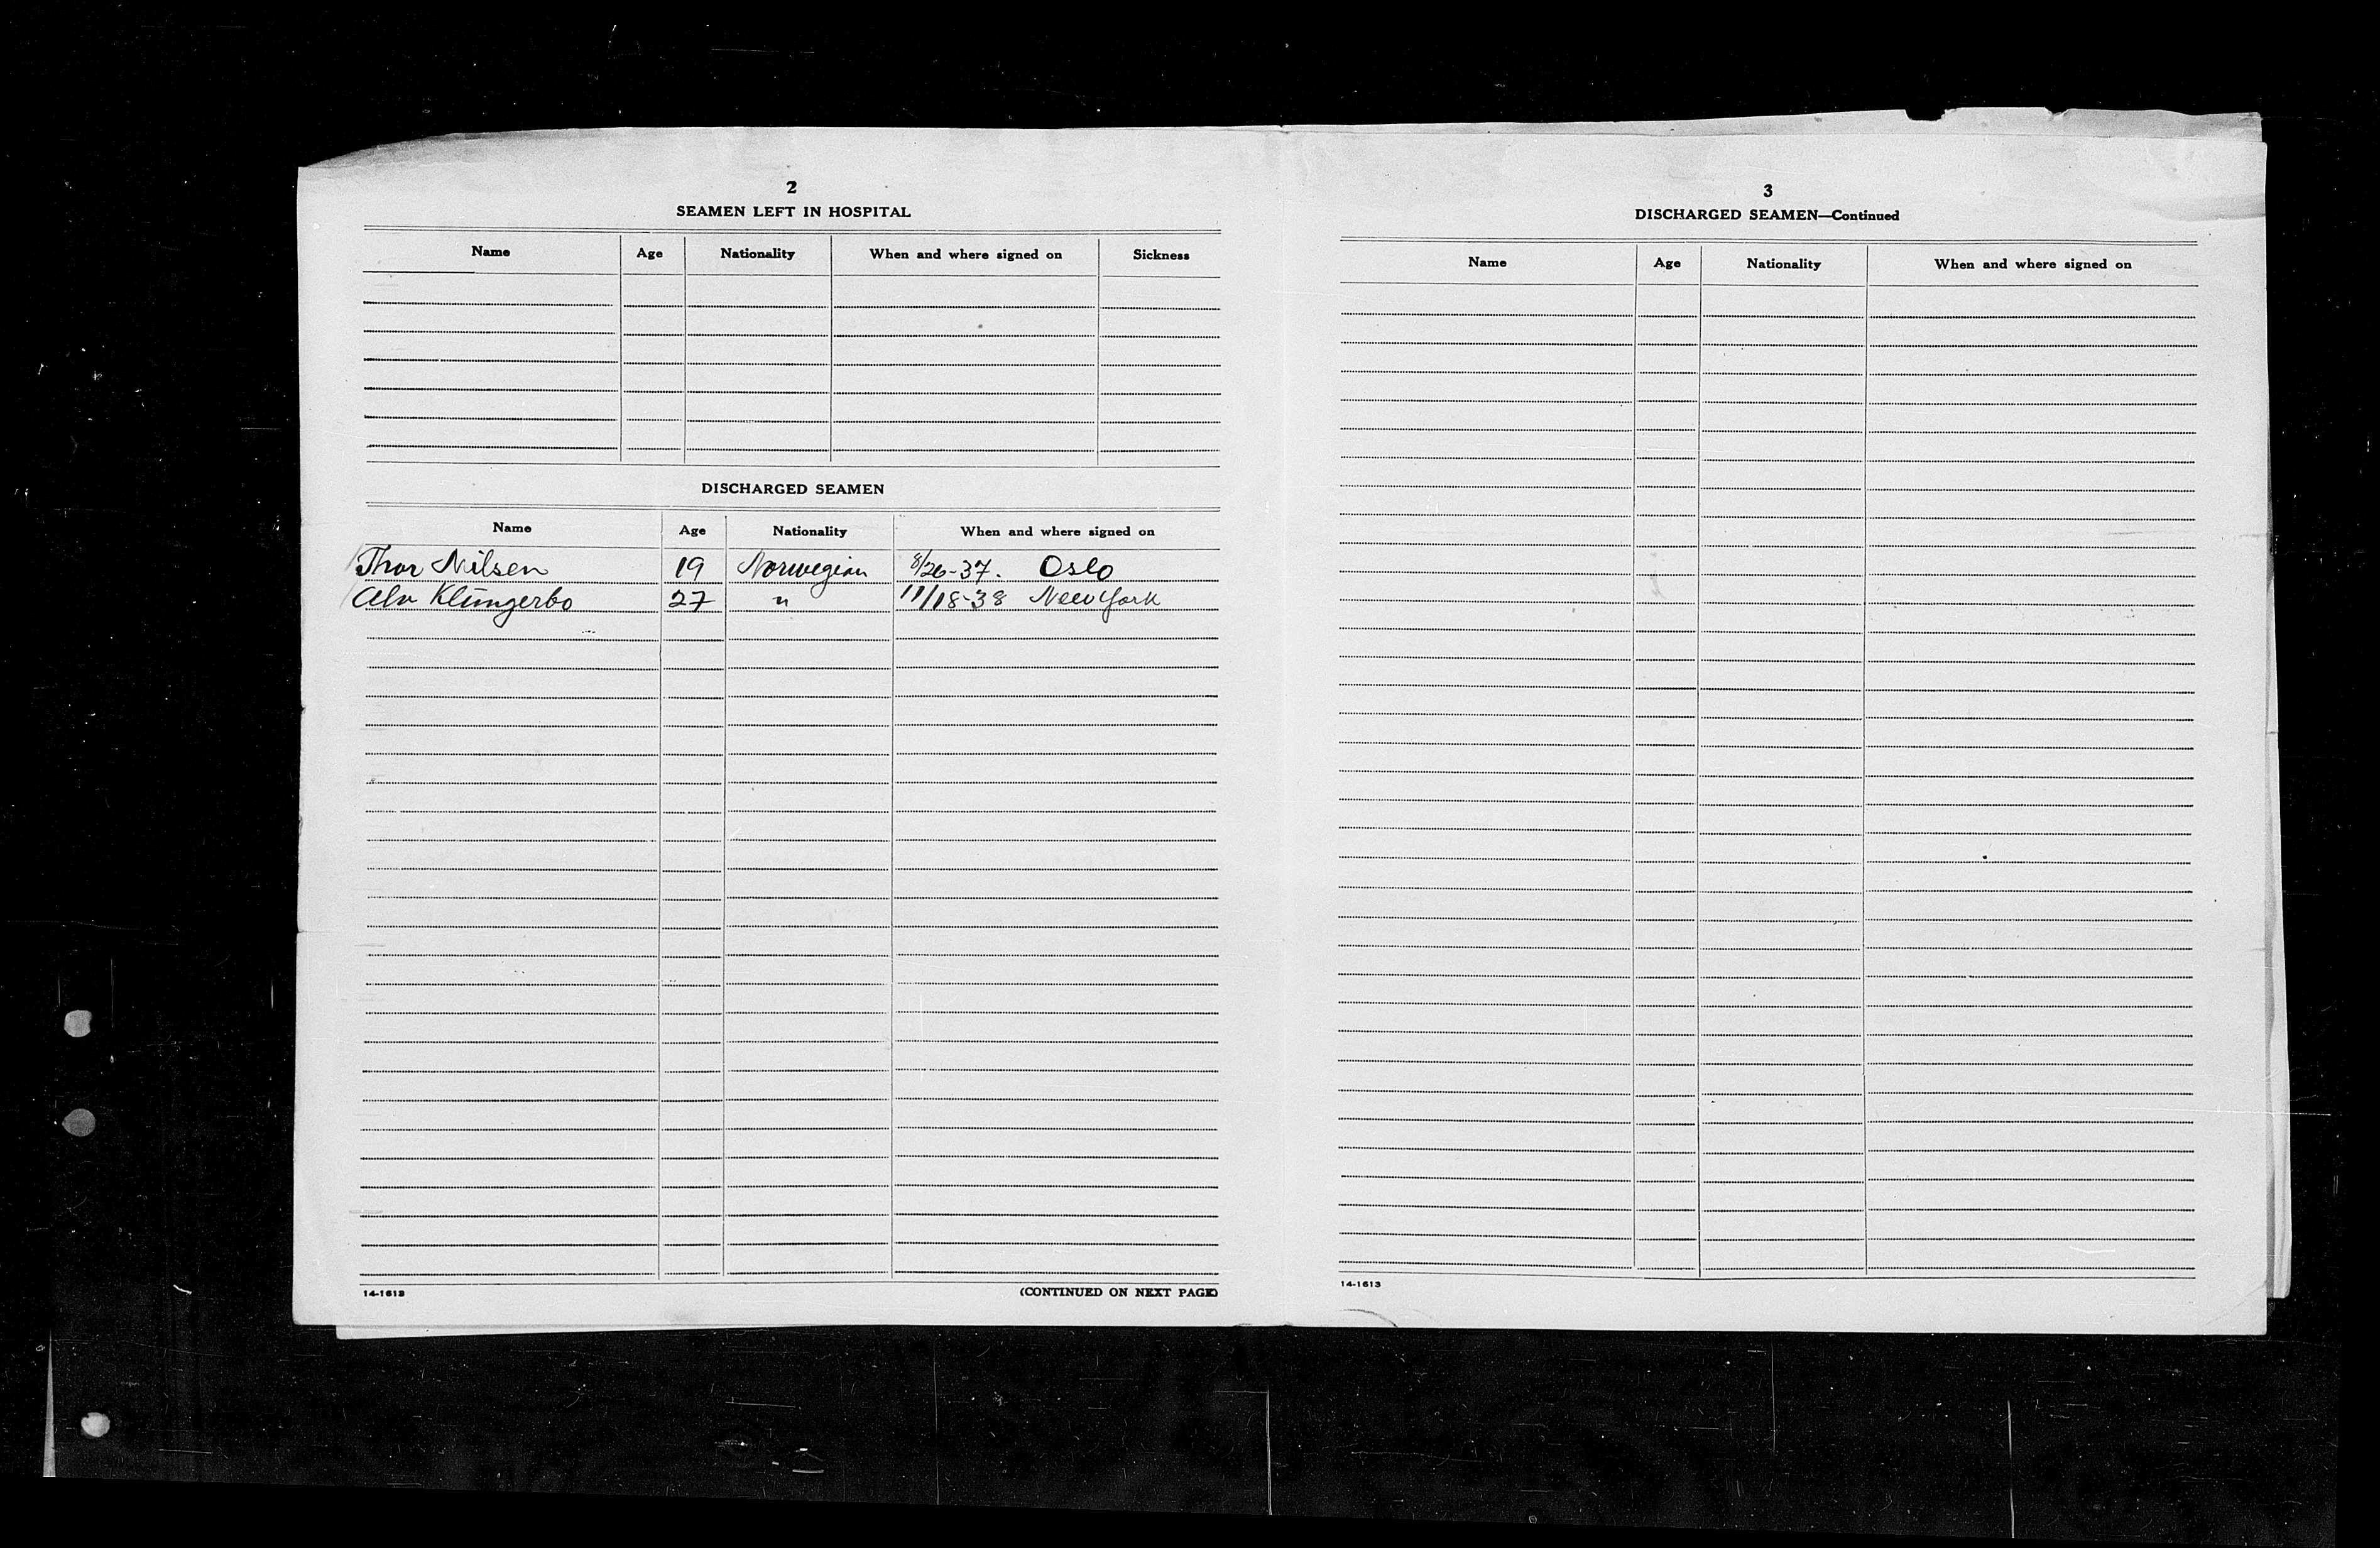 2
SEAMEN LEFT IN HOSPITAL
Name Age Nationality When and where signed on Sickness
DISCHARGED SEAMEN
Name Age Nationality When and where signed on
Thor Nilsen 19 Norwegian 8/26-37. Oslo
Alv Klüngerbo 27 " 11/18-38 New York
14-1613 (CONTINUED ON NEXT PAGE)
3
DISCHARGED SEAMEN—Continued
Name Age Nationality When and where signed on
14-1613